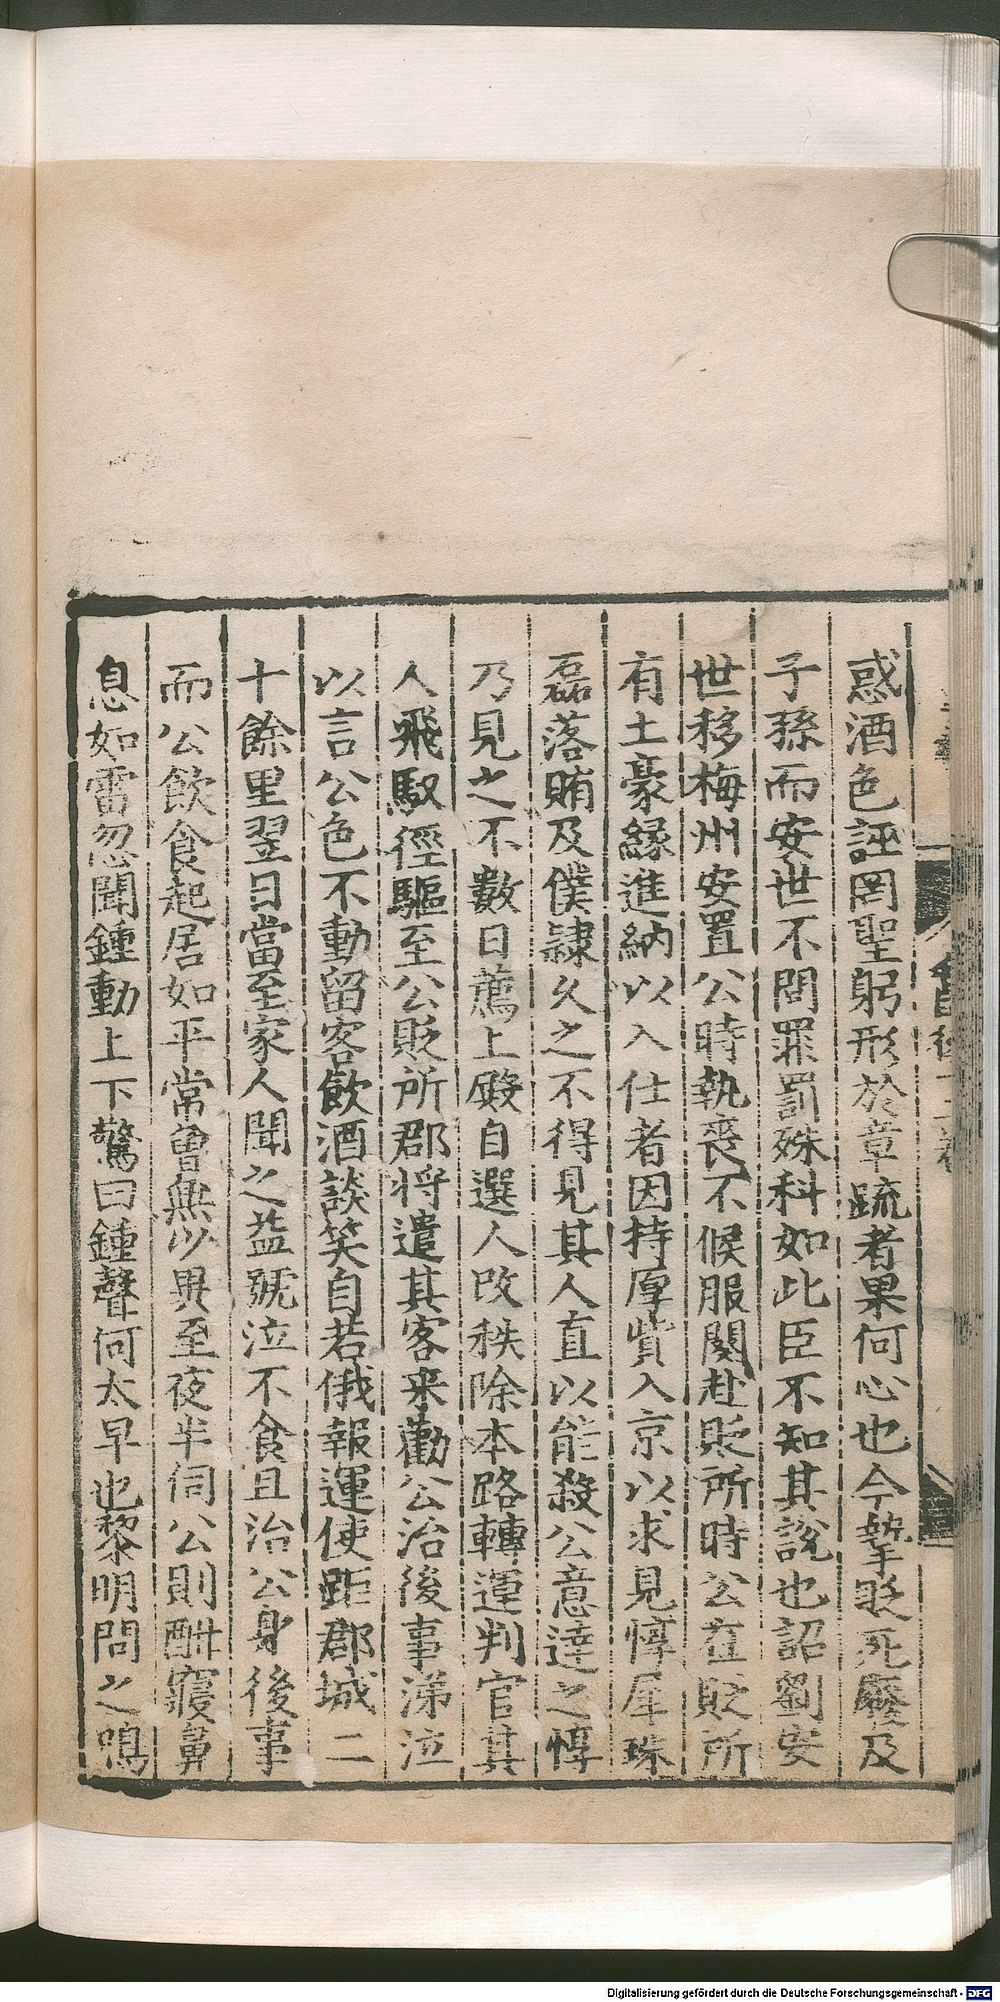 惑酒色誣罔聖躬形於章疏者果何心也今摯死廢及
子孫而安世不問罪罰殊科如此臣不知其說也詔劉安
世移梅州安置公時執喪不候服闋赴貶所時公在貶所
有土豪緣進納以入仕者因持厚貲入京以求見惇犀珠
磊落賄及僕隷久之不得見其人直以能殺公意達之惇
乃見之不數日薦上殿自選人改秩除本路轉運判官其
人飛馭徑驅至公貶所郡將遣其客来勸公治後事涕泣
以言公色不動留客飲酒談笑自若俄報運使距郡城二
十餘里翌日當至家人聞之益號泣不食且治公身後事
而公飲食起居如平常曾無以異至夜半伺公則酣寢鼻
息如雷忽聞鍾動上下驚曰鍾聲何太早也黎明問之鳴
Digitalisierung gefördert durch die Deutsche Forschungsgemeinschaft - DFG